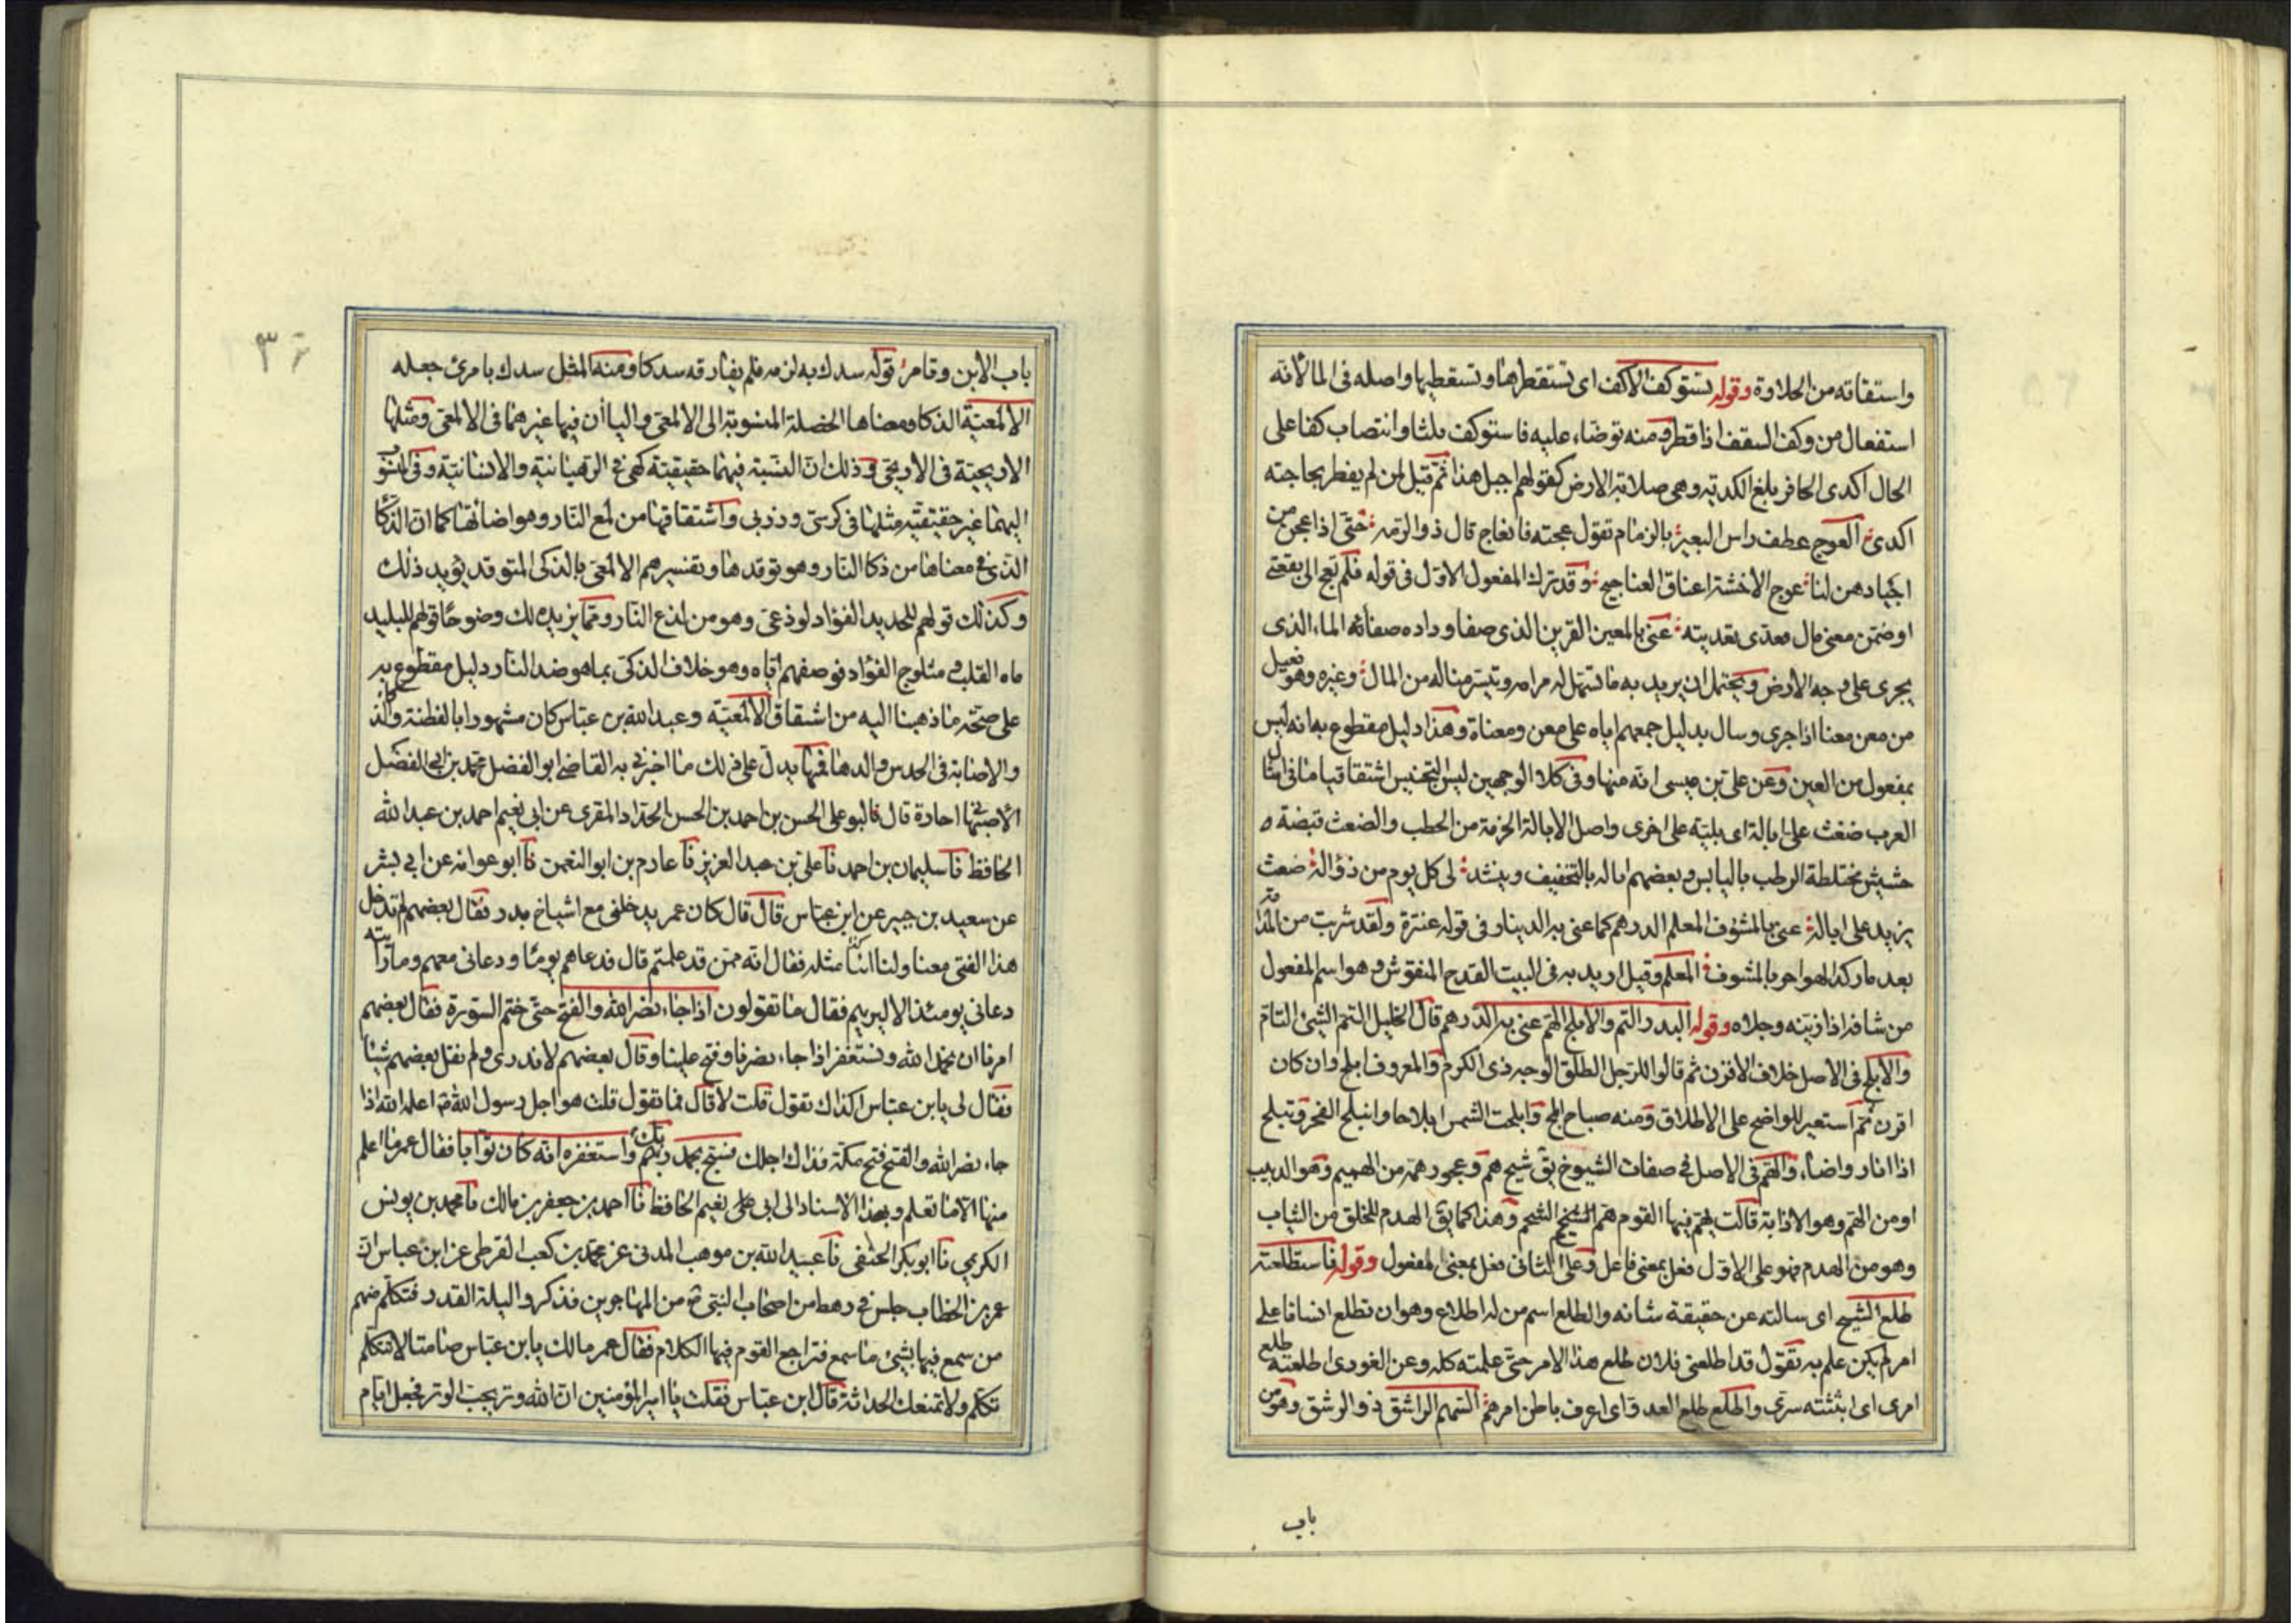 واستقاته من الحلاوة وقوله نستوكف الاكف اى نستقطرها ونستقطيها واصله فى الما لانه
استفعال من وكف السقف اذا قطر ومنه توضاء عليه فاستوكف ثلثا وانتصاب كفا على
الحال اكدى الحافر بلغ الكدية وهى صلابة الارض كقولهم اجبل هذا ثم قيل لمن لم يظفر بحاجته
اكدى العوج عطف راس البعير بالزمام تقول عجته فانعاج قال ذو الرمه حتى اذا عجن من
اجيادهن لنا عوج الاخشة اعناق العناجيج وقد ترك المفعول الاول فى قوله فلم تعج الى بقعتى
او ضمن معنى مال معدى تعديته عنى بالمعين القرين الذى صفا وداده صفائه الماء الذى
يجرى على وجه الارض ويحتمل ان يريد به ما تسهل له مرامه وتيسر مناله من المال وغيره وهو فعيل
من معن معنا اذا جرى وسال بدليل جمعهم اياه على معن ومعناة وهذا دليل مقطوع به انه ليس
بمفعول من العين وعن على بن عيسى انه منها وفى كلا الوجهين ليس التجنيس اشتقاقيا منا فى امثال
العرب ضغث على ابالة اى بلية على اخرى واصل الابالة الحزمة من الحطب والضغث قبضة
حشيش مختلطة الرطب باليابس وبعضهم اماله بالتخفيف وينشد لى كل يوم من ذؤاله ضغث
يزيد على اباله عنى بالمشوف المعلم الدرهم كما عنى به الدينار فى قوله عنترة ولقد شربت من المدامة
بعد ما ركد الهواجر بالمشوف المعلم وقيل اريد به فى البيت القدح المنقوش وهو اسم المفعول
من شافه اذا زينه وجلاه وقوله البدر التم والابلج الهم عنى به الدرهم قال الخليل التم الشيئ التام
والابلج فى الاصل خلاف الاقرن ثم قالوا للرجل الطلق الوجه ذى الكرم والمعروف ابلج وان كان
اقرن ثم استعير للواضح على الاطلاق ومنه صباح ابلج وابلجت الشمس ابلاجا وانبلج الفجر وتبلج
اذا انار واضاء والهم فى الاصل فى صفات الشيوخ يق شيخ هم وعجوز همة من الهميم وهو الدبيب
او من الهم وهو الاذابة قالت يهم فيها القوم هم الشيخ الشحم وهذا كما يق الهدم للخلق من الثياب
وهو من الهدم فهو على الاول فعل بمعنى فاعل وعلى الثانى فعل بمعنى المفعول وقوله فاستطلعته
طلع الشيخ اى سالته عن حقيقة شانه والطلع اسم من له اطلاع وهو ان تطلع انسانا على
امر لم يكن علم به تقول قد اطلعنى فلان طلع هذا الامر حتى علمته كله وعن الغورى اطلعته طلع
امرى اى ابثثته سرى واطلع طلع العدو اى اعرف باطن امرهم السهم الراشق ذو الرشق وهو من
باب
باب الابن وتامر قوله سدك به لزمه فلم يفارقه سدكا ومنه المثل سدك بامرئ جعله
الالمعية الذكا ومعناها الخصلة المنسوبة الى الالمعى واليا ان فيها غير هما فى الالمعى ومثلها
الاريحية فى الاريحى وذلك ان النسبة فيهما حقيقية كهى فى الرهبانية والانسانية وفى المنسوب
اليهما غير حقيقية مثلها فى كرسى ودردى واشتقاقها من لمع النار وهو اضائتها كما ان الذكا
الذى فى معناها من ذكا النار وهو توقدها وتفسيرهم الالمعى بالذكى المتوقد يؤيد ذلك
وكذلك قولهم للحديد الفؤاد لوذعى وهو من لذع النار ومما يزيد لك وضوحا قولهم للبليد
ماه القلب ومثلوج الفؤاد فوصفهم اياه وهو خلاف الذكى بما هو ضد النار دليل مقطوع به
على صحة ما ذهبنا اليه من اشتقاق الالمعية وعبد الله بن عباس كان مشهورا بالفطنة والذكا
والاصابة فى الحدس والدها فمما يدل على ذلك ما اخبرنى به القاضى ابو الفضل محمد بن ابى الفضل
الاصبهانى اجازة قال نا ابو على الحسن بن احمد بن الحسن الحداد المقرى عن ابى نعيم احمد بن عبد الله
الحافظ نا سليمان بن احمد نا على بن عبد العزيز نا عارم بن ابو النعمن نا ابو عوانه عن ابى بشر
عن سعيد بن جبير عن ابن عباس قال قال كان عمر يدخلنى مع اشياخ بدر فقال بعضهم لم تدخل
هذا الفتى معنا ولنا ابنا مثله فقال انه ممن قد علمتم قال فدعاهم يوما ودعانى معهم وما رايته
دعانى يومئذ الا ليريهم فقال ما تقولون اذا جاء نصر الله والفتح حتى ختم السورة فقال بعضهم
امرنا ان نحمد الله ونستغفر اذا جاء نصرنا وفتح علينا وقال بعضهم لا ندرى ولم يقل بعضهم شيئا
فقال لى يا بن عباس اكذاك تقول قلت لا قال فما تقول قلت هو اجل رسول الله اعلمه الله اذا
جاء نصر الله والفتح فتح مكة فذاك اجلك فسبح بحمد ربك واستغفره انه كان توابا فقال عمر ما اعلم
منها الا ما تعلم وبهذا الاسناد الى ابى نعيم الحافظ نا احمد بن جعفر بن مالك نا محمد بن يونس
الكريمى نا ابو بكر الحنفى نا عبيد الله بن موهب المدنى عن محمد بن كعب القرظى عن ابن عباس ان
عمر بن الخطاب جلس فى رهط من اصحاب النبى من المهاجرين فذكروا ليلة القدر فتكلم منهم
من سمع فيها بشيئ مما سمع فتراجع القوم فيها الكلام فقال عمر مالك يا بن عباس صامتا لا تتكلم
تكلم ولا تمنعك الحداثة قال ابن عباس فقلت يا امير المؤمنين ان الله وتر يحب الوتر فجعل ايام